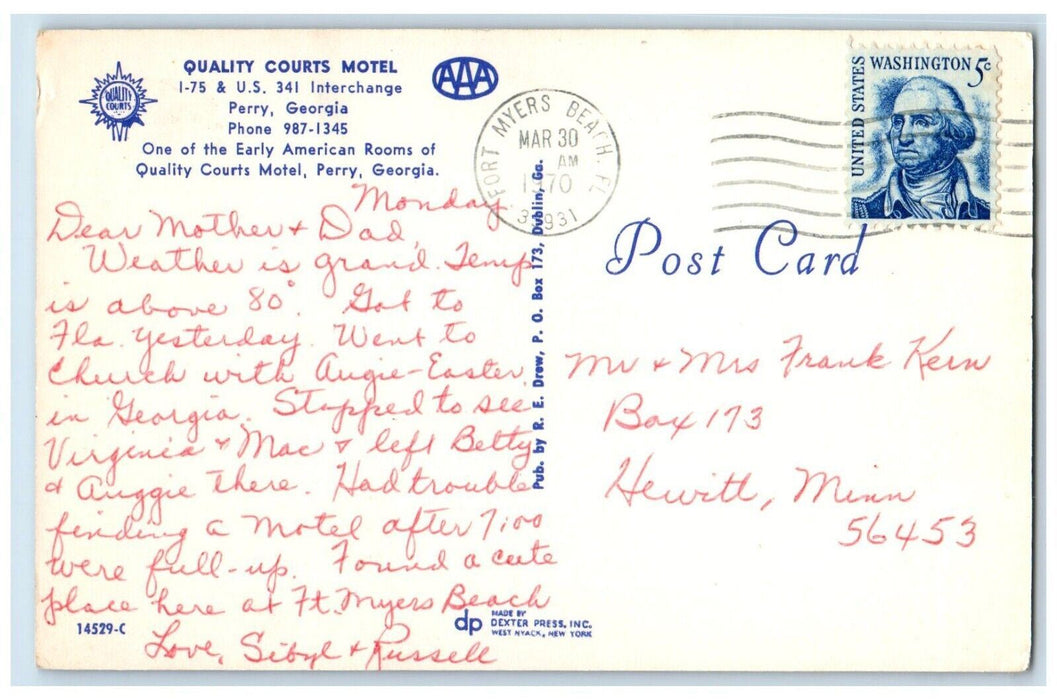 QUALITY COURTS MOTEL
I-75 & U.S. 341 Interchange
Perry, Georgia
Phone 987-1345
One of the Early American Rooms of
Quality Courts Motel, Perry, Georgia.
QUALITY
COURTS
AAA
FORT MYERS BEACH, FL
MAR 30
AM
1970
33931
UNITED STATES
WASHINGTON 5c
Post Card
Monday
Dear Mother & Dad,
Weather is grand. Temp
is above 80°. Got to
Fla. yesterday. Went to
Church with Augie-Easter
in Georgia. Stopped to see
Virginia & Mac & left Betty
& Auggie there. Had trouble
finding a Motel after 7:00
were full-up. Found a cute
place here at Ft. Myers Beach
Love, Sibyl & Russell
Pub. by R. E. Drew, P. O. Box 173, Dublin, Ga.
Mr & Mrs Frank Kern
Box 173
Hewitt, Minn
56453
14529-C
dp
MADE BY
DEXTER PRESS, INC.
WEST NYACK, NEW YORK